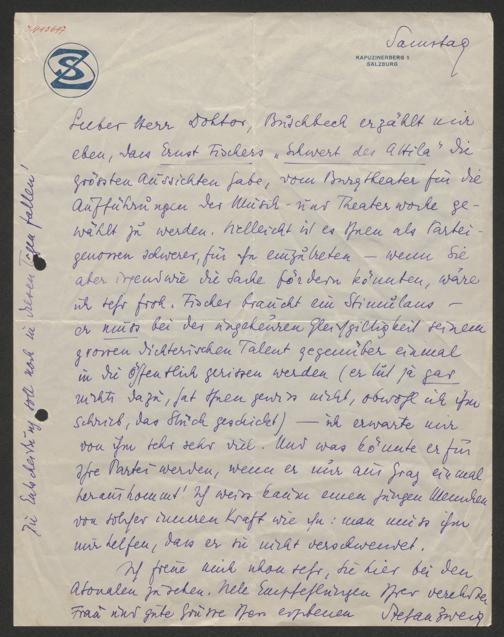 Samstag
SZ
KAPUZINERBERG 5
SALZBURG
Lieber Herr Doktor, Buschbeck erzählt mir
eben, dass Ernst Fischers „Schwert des Attila" die
grössten Aussichten habe, vom Burgtheater für die
Aufführungen der Musik- und Theaterwoche ge-
wählt zu werden. Vielleicht ist es Ihnen als Partei-
genossen schwerer, für ihn einzutreten – wenn Sie
aber irgendwie die Sache fördern könnten, wäre
ich sehr froh. Fischer braucht ein Stimulans –
er muss bei der ungeheuren Gleichgiltigkeit seinem
grossen dichterischen Talent gegenüber einmal
in die Öffentlichk gerissen werden (er tut ja gar
nichts dazu, hat Ihnen gewiss nicht, obwohl ich ihm
schrieb, das Stück geschickt) – ich erwarte mir
von ihm sehr sehr viel. Und was könnte er für
Ihre Partei werden, wenn er nur aus Graz einmal
herauskommt! Ich weiss kaum einen jungen Menschen
von solcher inneren Kraft wie ihn: man muss ihm
nur helfen, dass er sie nicht verschwendet.
Ich freue mich schon sehr, Sie hier bei den
Atonalen zu sehen. Viele Empfehlungen Ihrer verehrten
Frau und gute Grüsse Ihres ergebenen Stefan Zweig
Die Entscheidung soll noch in diesen Tagen fallen!